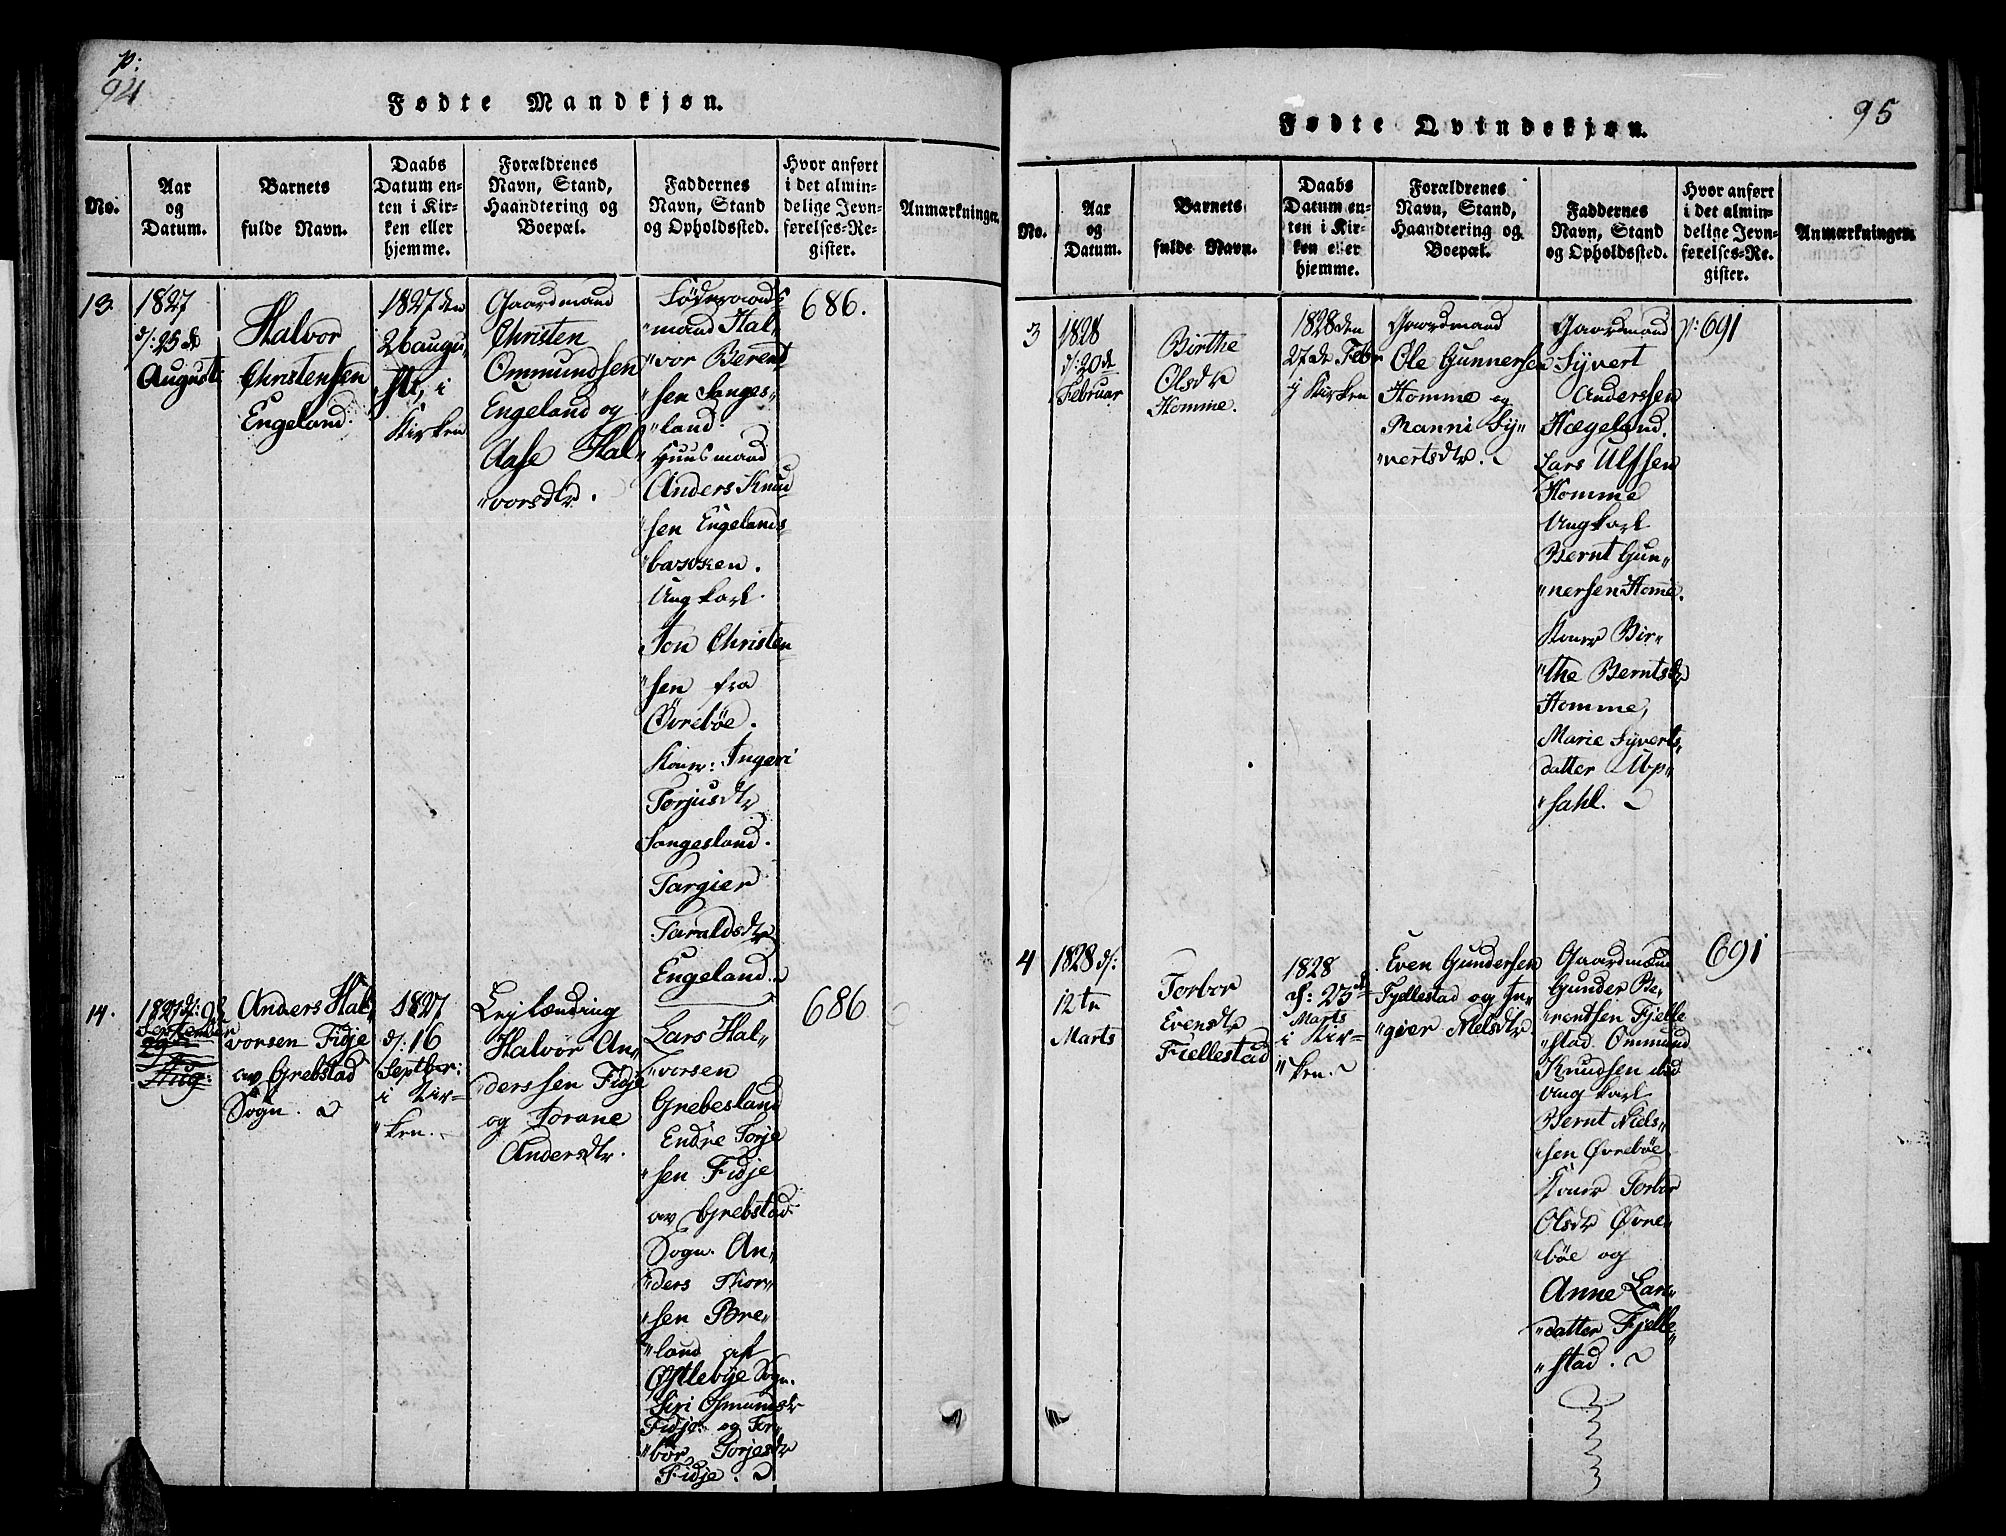 p:
94
Fødte Mandkjøn.
No.
Aar
og
Datum.
Barnets
fulde Navn.
Daabs
Datum en-
ten i Kir-
ken eller
hjemme.
Forældrenes
Navn, Stand,
Haandtering og
Boepæl.
Faddernes
Navn, Stand
og Opholdssted.
Hvor anført
i det almin-
delige Jevn-
førelses-Re-
gister.
Anmærkninger.
13.
1827
d: 25 de
August.
Halvor
Christensen
Engeland.
1827 den
26 augu-
st, i
Kirken
Gaardmand
Christen
Ommundsen
Engeland og
Aase Hal-
"vorsdtr.
"mand Hal-
"vor Berent
"sen Sanges-
"land.
Huusmand
Anders Knud
"sen Engelands-
"bakken.
Ungkarl
Jon Christen-
"sen fra
Øvrebøe.
Koner: Ingeri
Torjusdtr
Sangesland.
Targier
Taraldsdtr
Engeland.
686.
14.
1827 d: 9de
September
Aug:
Anders Hal-
vorsen Fidje
av Grebstad
Sogn.
1827
d: 16
Septber:
i Kir-
"ken.
Lejlænding
Halvor An-
"derssen Fidje
og Torane
Andersdtr.
Lars Hal-
"vorsen
Grebesland
Endre Torje
"sen Fidje
av Grebstad
Sogn. An-
"ders Thor-
"sen Bre-
"land af
Østlebøje Sogn.
Siri Osmundsdtr
Fidje og Tor-
"bor Torjesdtr
Fidje.
686
95
Fødte Qvindekjøn.
No.
Aar
og
Datum.
Barnets
fulde Navn.
Daabs
Datum en-
ten i Kir-
ken eller
hjemme.
Forældrenes
Navn, Stand,
Haandtering og
Boepæl.
Faddernes
Navn, Stand
og Opholdssted.
Hvor anført
i det almin-
delige Jevn-
førelses-Re-
gister.
Anmærkninger.
3
1828
d: 20 de
Februar
Birthe
Olsdtr
Homme.
1828 den
27 de Febr
i Kirken
Gaardmand
Ole Gunnersen
Homme og
Manni Sy-
"vertsdtr.
Gaardmand
Syvert
Anderssen
Hægeland.
Lars Ulfsen
Homme
Ungkarl
Bernt Gun-
"nersen Homme.
Koner Bir-
"the Berntsdtr
Homme,
Marie Syverts-
datter Up-
"sahl.
p: 691
4
1828 d:
12te
Marts
Torbor
Evensdtr
Fiellestad
1828
d: 23 de
Marts
i Kir-
"ken.
Even Gundersen
Fjellestad og In-
"gier Nelsdtr
Gaardmænd
Gunder Be-
"rentsen Fjelle
"stad. Ommund
Knudsen ibid
Ungkarl
Bernt Niels-
"sen Øvrebøe
Koner Torbor
Olsdtr Øvre-
"bøe og
Anne Lars-
"datter Fjelle-
"stad.
691